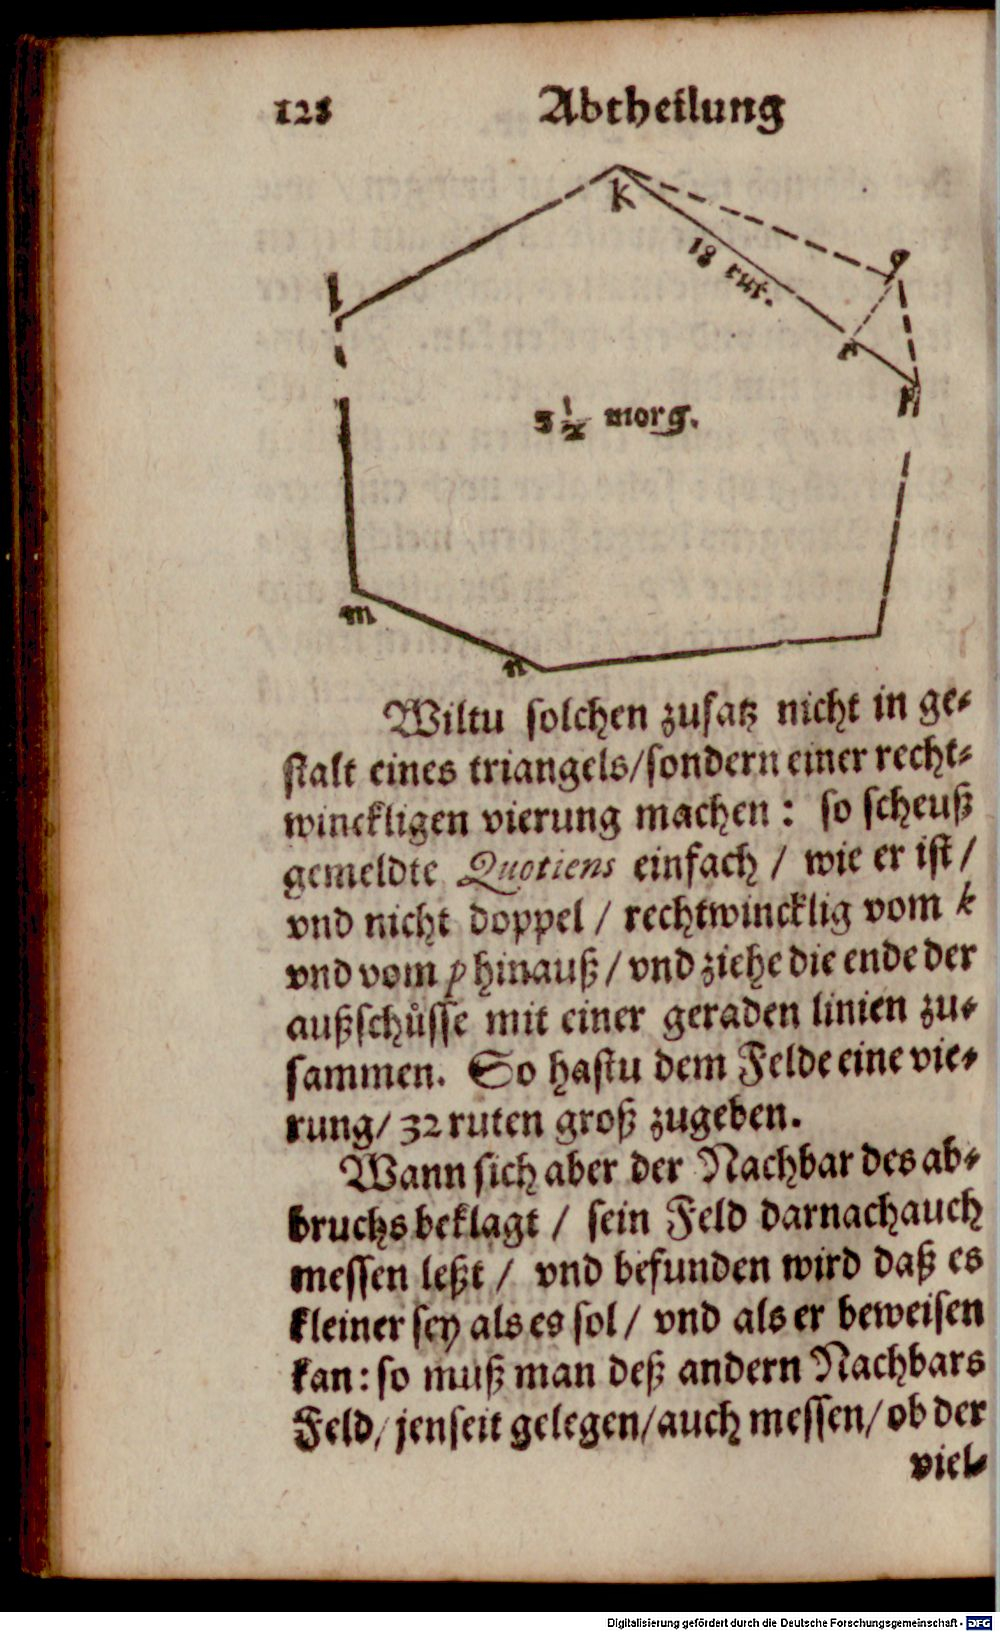 128 Abtheilung
k
l
q
18 rut.
r
p
3 1/2 morg.
m
n
Wiltu solchen zusatz nicht in ge-
stalt eines triangels/sondern einer recht-
winckligen vierung machen: so scheuß
gemeldte Quotiens einfach / wie er ist /
vnd nicht doppel / rechtwincklig vom k
vnd vom p hinauß / vnd ziehe die ende der
außschüsse mit einer geraden linien zu-
sammen. So hastu dem Felde eine vie-
rung/ 32 ruten groß zugeben.
Wann sich aber der Nachbar des ab-
bruchs beklagt / sein Feld darnach auch
messen leßt / vnd befunden wird daß es
kleiner sey als es sol / vnd als er beweisen
kan: so muß man deß andern Nachbars
Feld/ jenseit gelegen/auch messen/ ob der
viel-
Digitalisierung gefördert durch die Deutsche Forschungsgemeinschaft - DFG